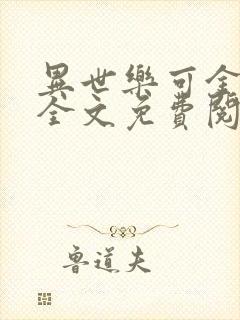 異世樂可全
全文免費閱
魯道夫